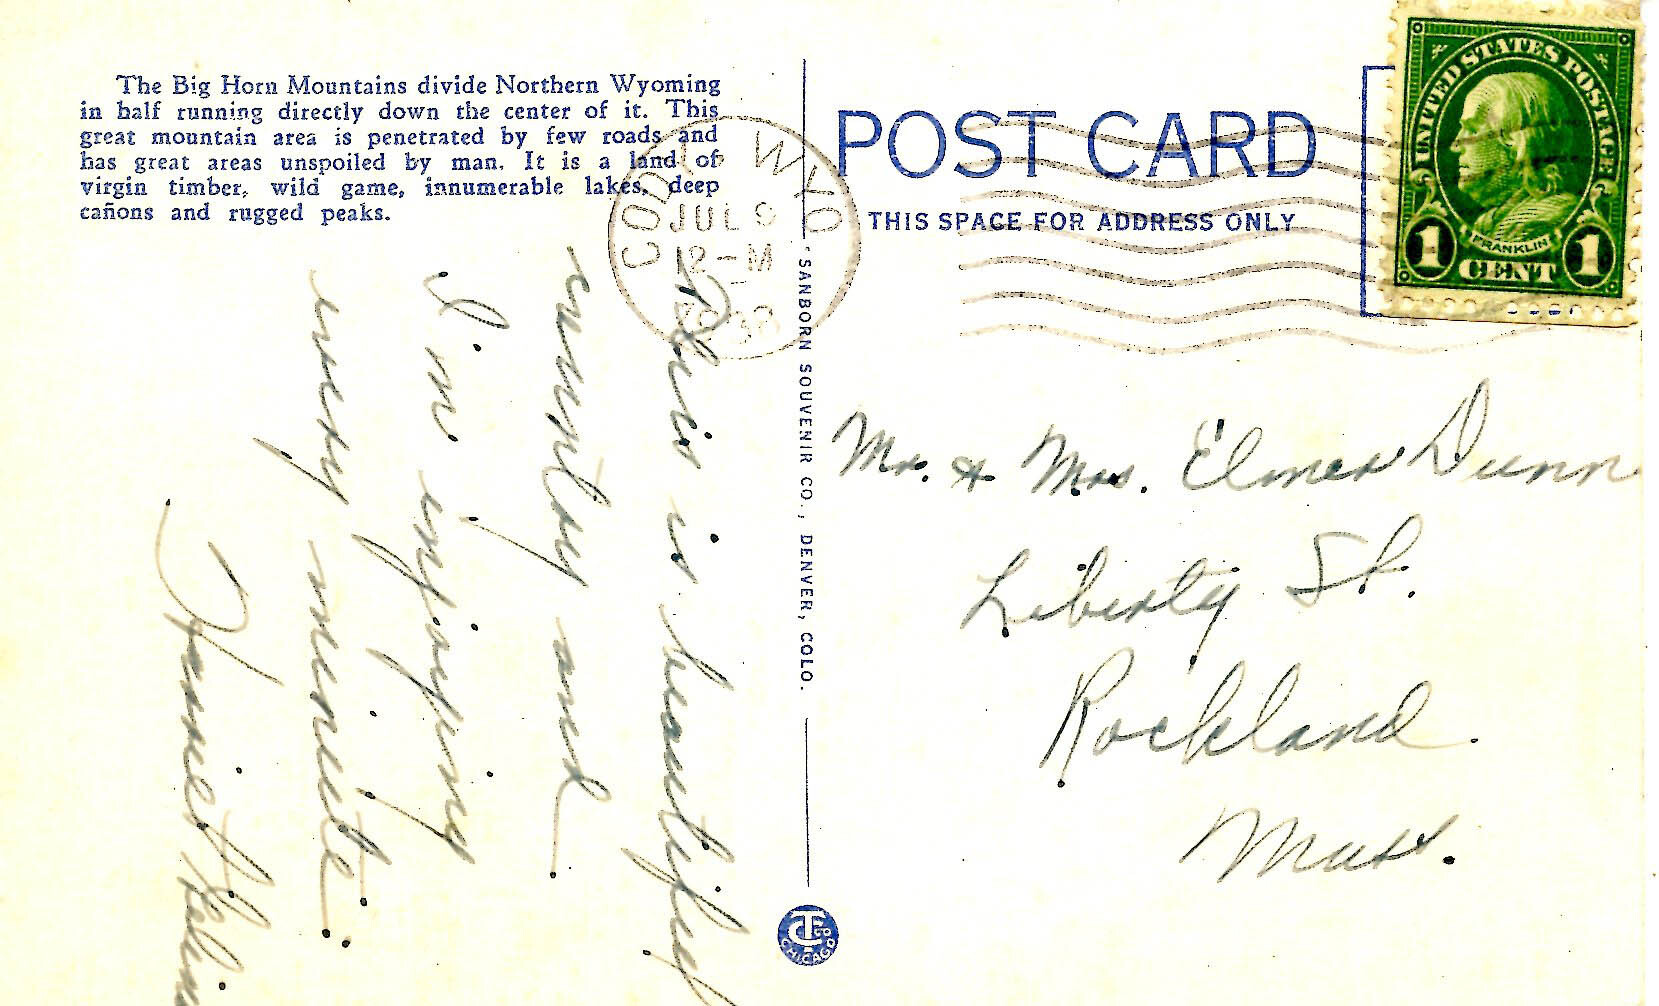 The Big Horn Mountains divide Northern Wyoming
in half running directly down the center of it. This
great mountain area is penetrated by few roads and
has great areas unspoiled by man. It is a land of
virgin timber, wild game, innumerable lakes, deep
cañons and rugged peaks.
This is beautiful
country and
I'm enjoying
every minute.
CODY WYO
JUL 9
12-M
SANBORN SOUVENIR CO., DENVER, COLO.
CT CO
CHICAGO
POST CARD
THIS SPACE FOR ADDRESS ONLY
UNITED STATES POSTAGE
FRANKLIN
1 CENT 1
Mr. & Mrs. Elmer Dunn
Liberty St.
Rockland.
Mass.